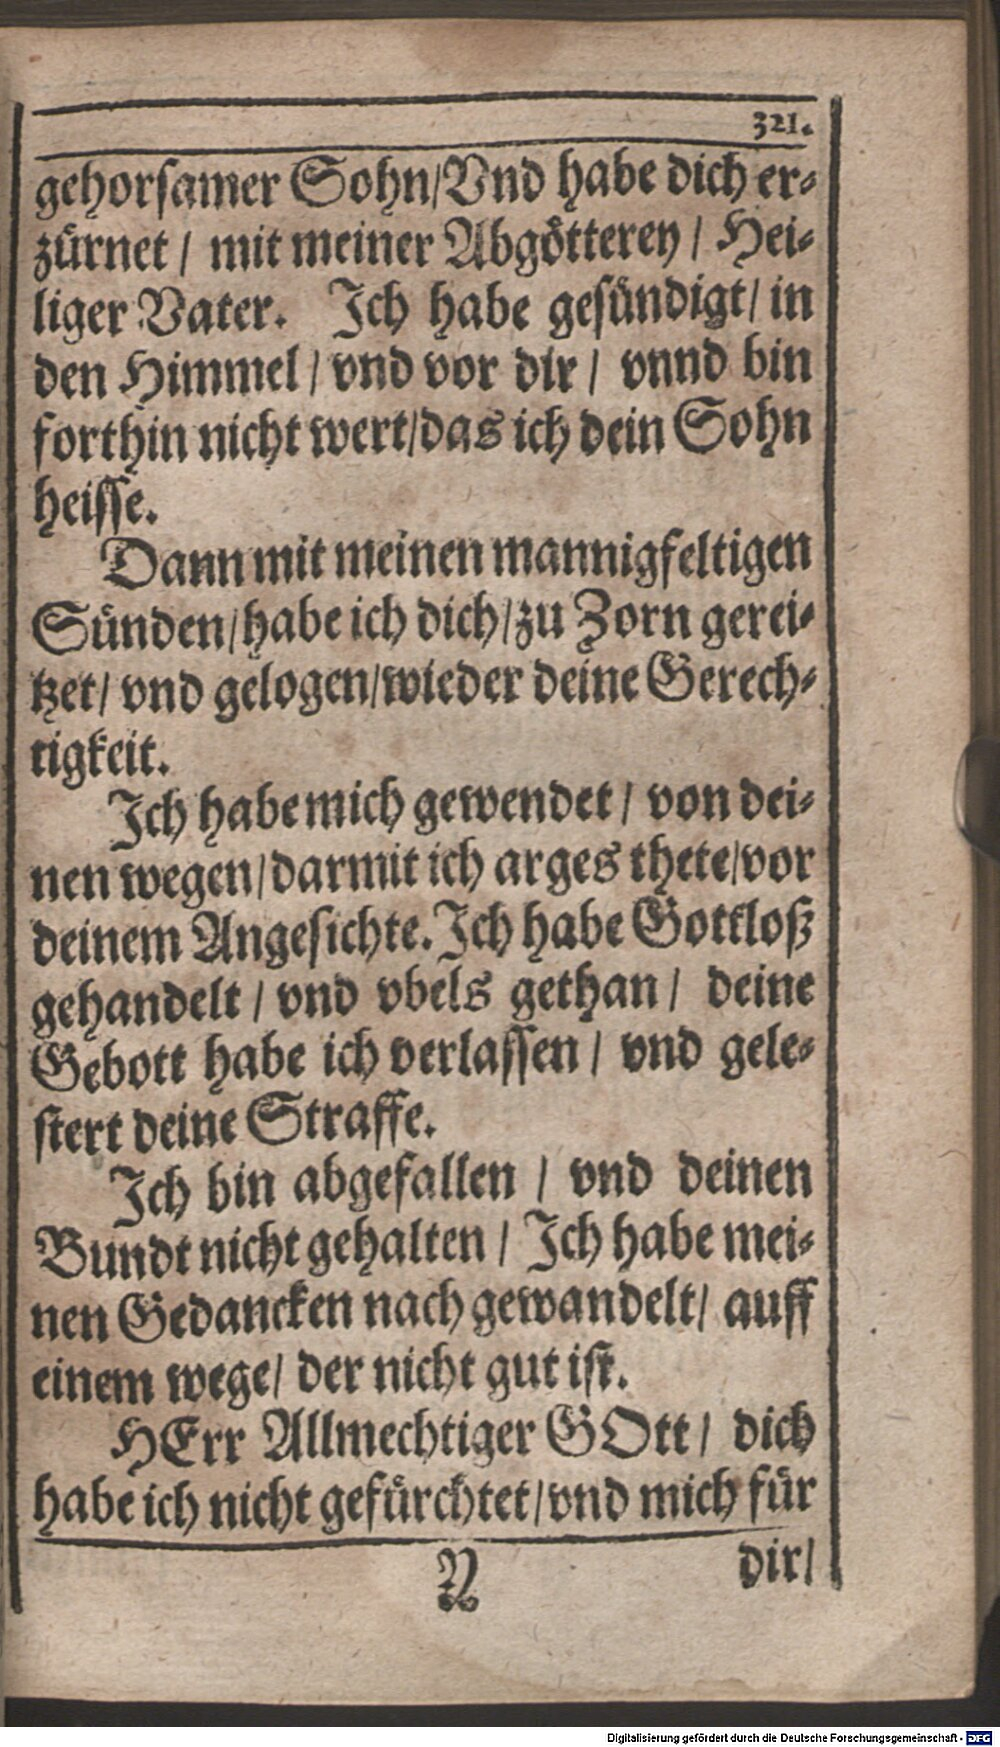 321.
gehorsamer Sohn/Vnd habe dich er-
zürnet / mit meiner Abgötterey / Hei-
liger Vater. Ich habe gesündigt/ in
den Himmel / vnd vor dir / vnnd bin
forthin nicht wert/das ich dein Sohn
heisse.
Dann mit meinen mannigfeltigen
Sünden/habe ich dich/zu Zorn gerei-
tzet/ vnd gelogen/wieder deine Gerech-
tigkeit.
Ich habe mich gewendet / von dei-
nen wegen/darmit ich arges thete/vor
deinem Angesichte. Ich habe Gottloß
gehandelt / vnd vbels gethan / deine
Gebott habe ich verlassen / vnd gele-
stert deine Straffe.
Ich bin abgefallen / vnd deinen
Bundt nicht gehalten / Ich habe mei-
nen Gedancken nach gewandelt/ auff
einem wege/ der nicht gut ist.
HErr Allmechtiger GOtt / dich
habe ich nicht gefürchtet/vnd mich für
dir/
Digitalisierung gefördert durch die Deutsche Forschungsgemeinschaft - DFG